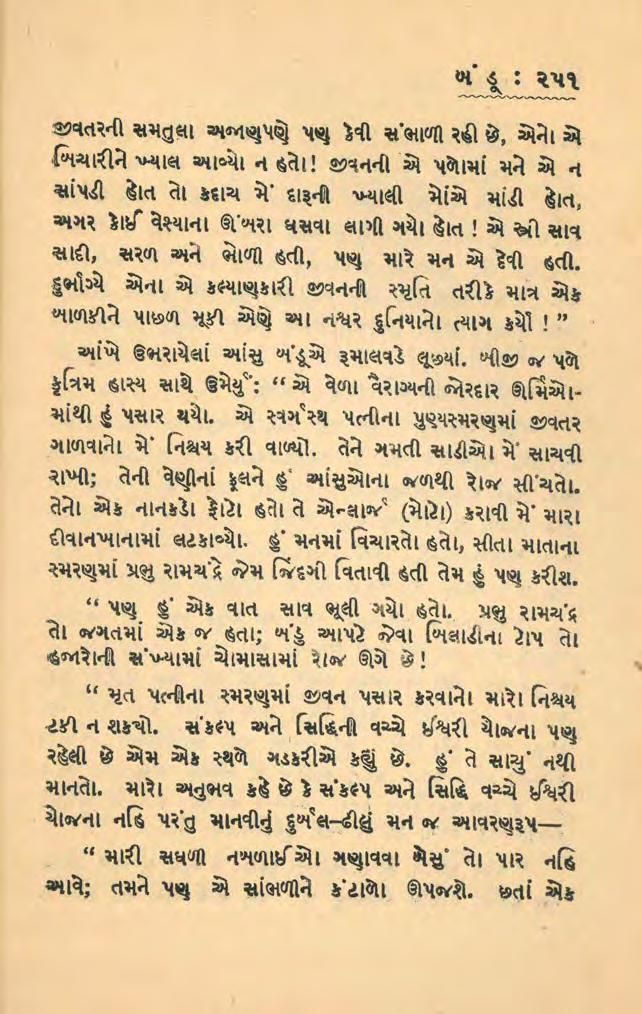 બંડૂ : ૨૫૧
જીવતરની સમતુલા અજાણપણે પણ કેવી સંભાળી રહી છે, એનો એ
બિચારીને ખ્યાલ આવ્યો ન હતો! જીવનની એ પળોમાં મને એ ન
સાંપડી હોત તો કદાચ મેં દારૂની પ્યાલી મોંએ માંડી હોત,
અગર કોઈ વેશ્યાના ઊંબરા ઘસવા લાગી ગયો હોત ! એ સ્ત્રી સાવ
સાદી, સરળ અને ભોળી હતી, પણ મારે મન એ દેવી હતી.
દુર્ભાગ્યે એના એ કલ્યાણકારી જીવનની સ્મૃતિ તરીકે માત્ર એક
બાળકીને પાછળ મૂકી એણે આ નશ્વર દુનિયાનો ત્યાગ કર્યો ! ”
આંખે ઉભરાયેલાં આંસુ બંડૂએ રૂમાલવડે લૂછ્યાં. બીજી જ પળે
કૃત્રિમ હાસ્ય સાથે ઉમેર્યું : “ એ વેળા વૈરાગ્યની જોરદાર ઊર્મિઓ-
માંથી હું પસાર થયો. એ સ્વર્ગસ્થ પત્નીના પુણ્યસ્મરણમાં જીવતર
ગાળવાનો મેં નિશ્ચય કરી વાળ્યો. તેને ગમતી સાડીઓ મેં સાચવી
રાખી; તેની વેણીનાં ફૂલને હું આંસુઓના જળથી રોજ સીંચતો.
તેનો એક નાનકડો ફોટો હતો તે એન્લાર્જ (મોટો) કરાવી મેં મારા
દીવાનખાનામાં લટકાવ્યો. હું મનમાં વિચારતો હતો, સીતા માતાના
સ્મરણમાં પ્રભુ રામચંદ્રે જેમ જિંદગી વિતાવી હતી તેમ હું પણ કરીશ.
“ પણ હું એક વાત સાવ ભૂલી ગયો હતો. પ્રભુ રામચંદ્ર
તો જગતમાં એક જ હતા; બંડુ આપટે જેવા બિલાડીના ટોપ તો
હજારોની સંખ્યામાં ચોમાસામાં રોજ ઊગે છે !
“ મૃત પત્નીના સ્મરણમાં જીવન પસાર કરવાનો મારો નિશ્ચય
ટકી ન શક્યો. સંકલ્પ અને સિદ્ધિની વચ્ચે ઈશ્વરી યોજના પણ
રહેલી છે એમ એક સ્થળે ગડકરીએ કહ્યું છે. હું તે સાચું નથી
માનતો. મારો અનુભવ કહે છે કે સંકલ્પ અને સિદ્ધિ વચ્ચે ઈશ્વરી
યોજના નહિ પરંતુ માનવીનું દુર્બલ–ઢીલું મન જ આવરણરૂપ—
“ મારી સઘળી નબળાઈઓ ગણાવવા બેસું તો પાર નહિ
આવે; તમને પણ એ સાંભળીને કંટાળો ઊપજશે. છતાં એક